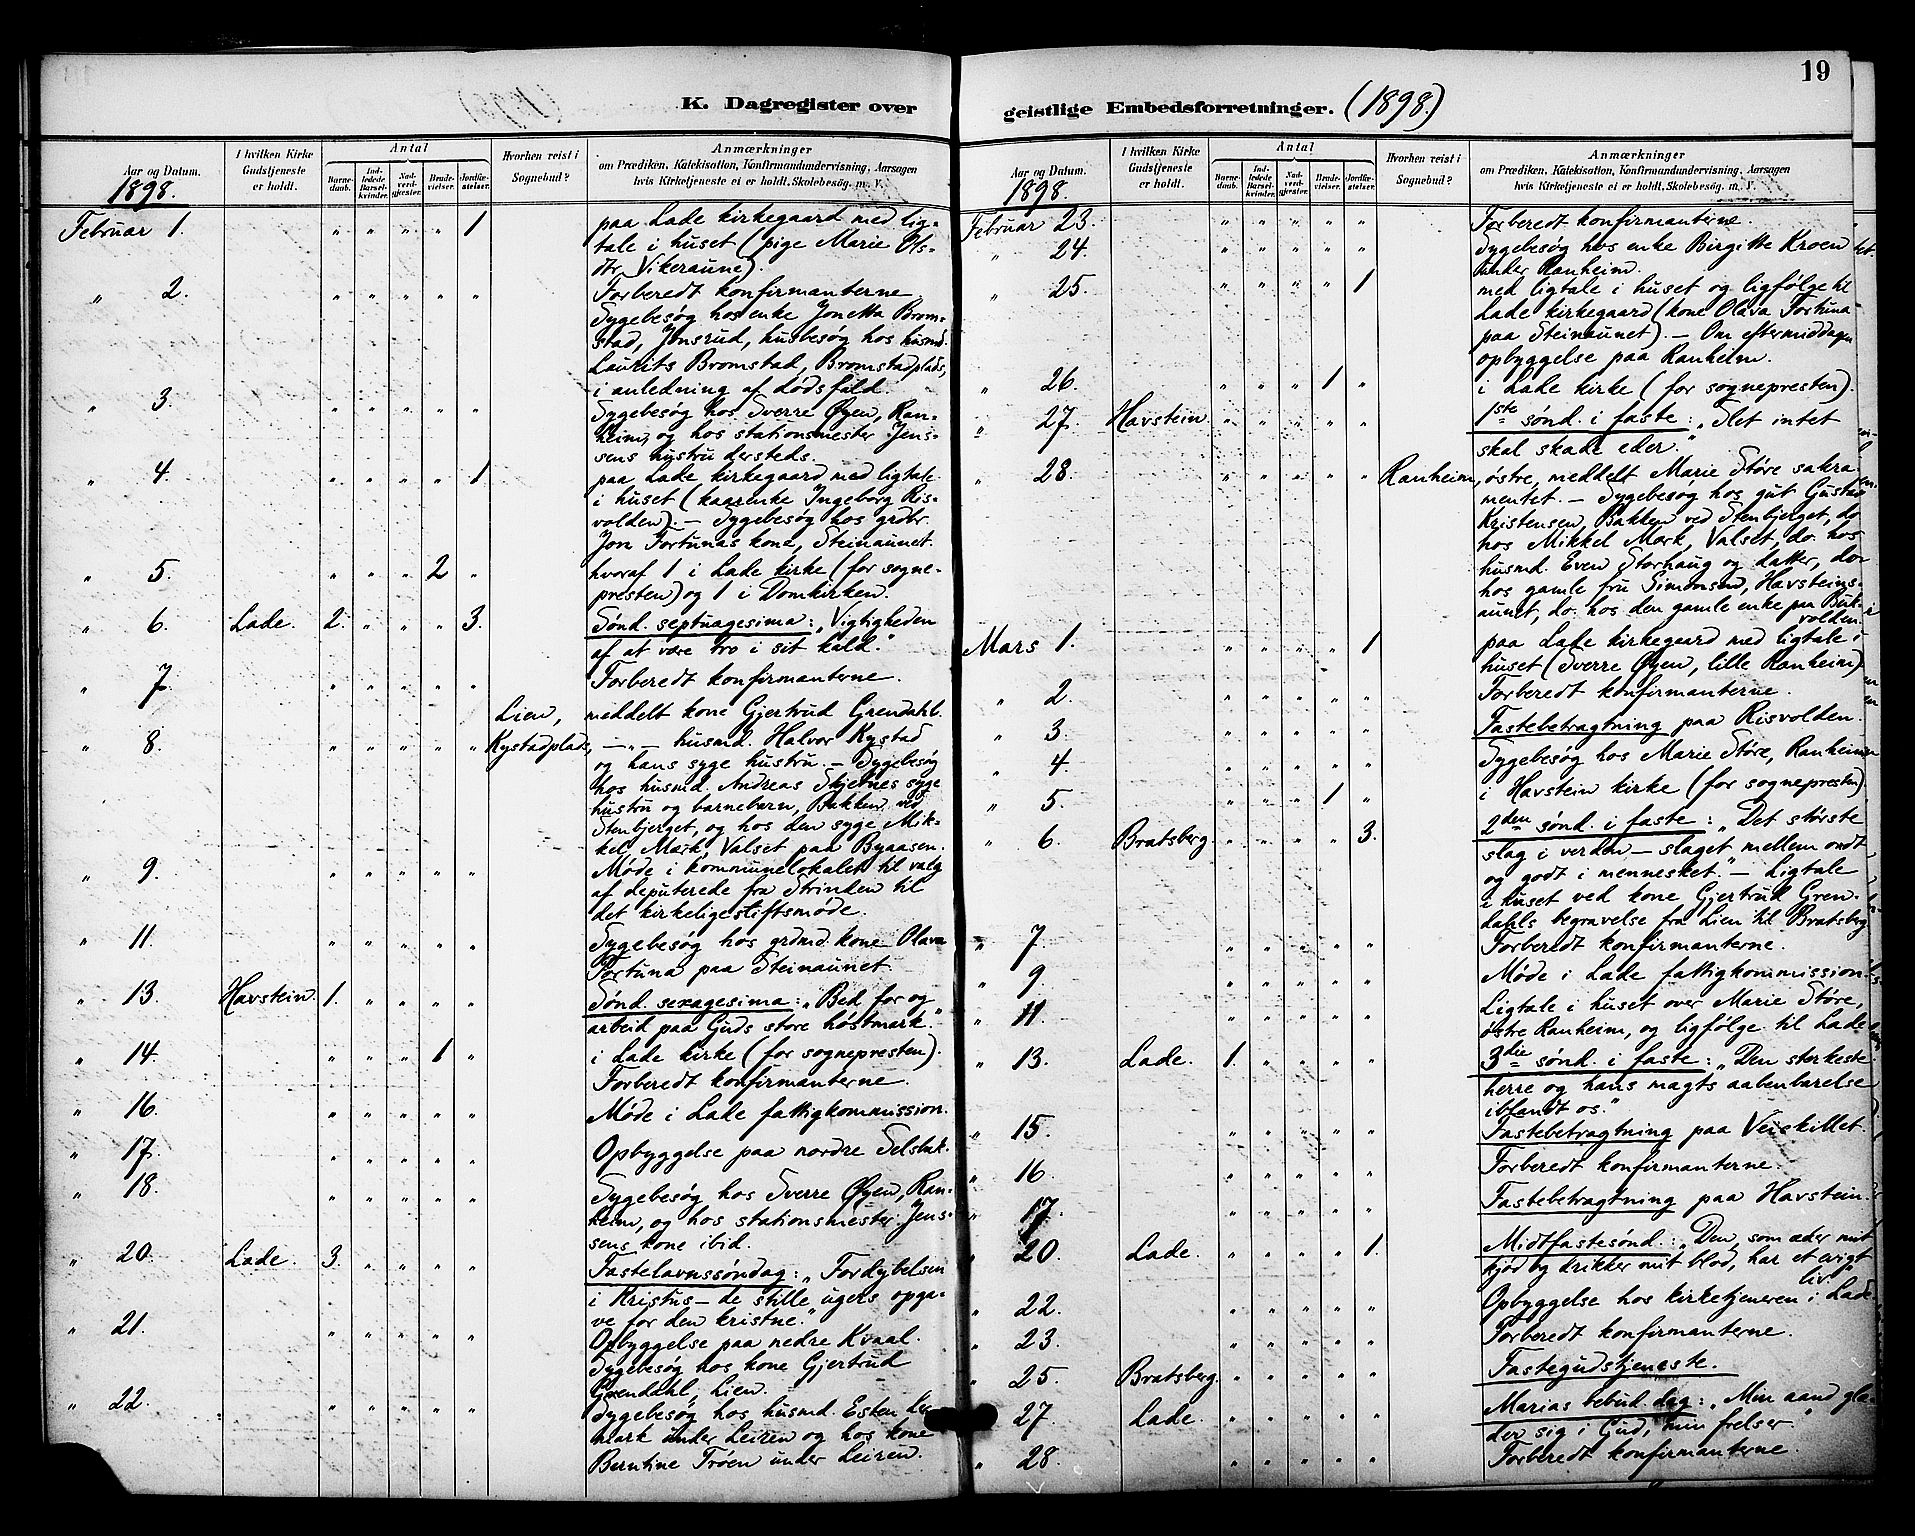 19
K. Dagregister over
geistlige Embedsforretninger. (1898.)
Aar og Datum.
1898.
I hvilken Kirke Gudstjeneste er holdt.
Antal
Barnedaab.
Indledede Barselkvinder.
Nadverdgjester.
Brudevielser.
Jordfæstelser.
Hvorhen reist i Sognebud?
Anmærkninger
om Prædiken, Katekisation, Konfirmandundervisning, Aarsagen
hvis Kirketjeneste ei er holdt, Skolebesøg. m. V.
Februar 1. " " " " 1 paa Lade kirkegaard med lig-
tale i huset (pige Marie Ols-
dtr Vikeraune).
" 2. " " " " " Forberedt konfirmanterne
Sygebesøg hos enke Jonetta Brom-
stad, Jonsrud, husbesøg hos husmd.
Laurits Bromstad, Bromstadplads,
i anledning af dødsfald.
" 3. " " " " " Sygebesøg hos Sverre Øyen, Ran-
heim, og hos stationsmester Jens-
sens hustru dersteds.
" 4. " " " " 1 paa Lade kirkegaard med ligtale
i huset (kaarenke Ingeborg Ris-
volden). – Sygebesøg hos grdbr.
Jon Fortunas kone, Steinaunet.
" 5. " " " 2 " hvoraf 1 i Lade kirke (for sogne-
presten) og 1 i Domkirken.
" 6. Lade. 2. " " " 3. Sønd. septuagesima: „Vigtigheden
af at være tro i sit kald."
" 7. " " " " " Forberedt konfirmanterne.
Lien, meddelt kone Gjertrud Grendahl.
" 8. " " " " " Kystadplads, – " – husmd. Halvor Kystad
og hans syge hustru. – Sygebesøg
hos husmd. Andreas Skjetnes syge
hustru og barnebarn, Bakken ved
Stenbjerget, og hos den syge Mik-
kel Mærk, Valset paa Byaasen.
" 9. " " " " " Møde i kommunelokalet til valg
af deputerede fra Strinden til
det kirkelige stiftsmøde.
" 11. " " " " " Sygebesøg hos grdmd.kone Olava
Fortuna paa Steinaunet.
" 13. Havstein. 1. " " " " Sønd. sexagesima: „Bed for og
arbeid paa Guds store høstmark."
" 14. " " " 1 " i Lade kirke (for sognepresten).
Forberedt konfirmanterne.
" 16. " " " " " Møde i Lade fattigkommission.
" 17. " " " " " Opbyggelse paa nordre Selsbak.
" 18. " " " " " Sygebesøg hos Sverre Øyen, Ran-
heim, og hos stationsmester Jens-
sens kone ibid.
" 20. Lade. 3. " " " " Fastelavnssøndag: „Fordybelsen
i Kristus – de stille ugers opga-
ve for den kristne."
" 21. " " " " " Opbyggelse paa nedre Kvaal.
Sygebesøg hos kone Gjertrud
Grendahl, Lien.
" 22. " " " " " Sygebesøg hos husmd. Esten
mark under Leiren og hos kone
Berntine Trøen under Leiren.
Aar og Datum.
1898.
I hvilken Kirke Gudstjeneste er holdt.
Antal
Barnedaab.
Indledede Barselkvinder.
Nadverdgjester.
Brudevielser.
Jordfæstelser.
Hvorhen reist i Sognebud?
Anmærkninger
om Prædiken, Katekisation, Konfirmandundervisning, Aarsagen
hvis Kirketjeneste ei er holdt, Skolebesøg. m. V.
Februar 23. " " " " " Forberedt konfirmanterne.
" 24. " " " " " Sygebesøg hos enke Birgitte Kroen
under Ranheim.
" 25. " " " " 1 med ligtale i huset og ligfølge til
Lade kirkegaard (kone Olava Fortuna
paa Steinaunet). – Om eftermiddagen
opbyggelse paa Ranheim.
" 26. " " " 1 " i Lade kirke (for sognepresten).
" 27. Havstein. " " " " " 1ste sønd. i faste: „Slet intet
skal skade eder."
" 28. " " " " " Ranheim, østre, meddelt Marie Støre sakra-
mentet. – Sygebesøg hos gut Gustav
Kristensen, Bakken ved Stenbjerget, do
hos Mikkel Mærk, Valset, do. hos
husmd. Even Storhaug og datter, do.
hos gamle fru Simonsen, Havsteins-
aunet, do. hos den gamle enke paa Buk-
volden.
Mars 1. " " " " 1 paa Lade kirkegaard med ligtale i
huset (Sverre Øyen, lille Ranheim)
" 2. " " " " " Forberedt konfirmanterne.
" 3. " " " " " Fastebetragtning paa Risvolden.
" 4. " " " " " Sygebesøg hos Marie Støre, Ranheim
" 5. " " " 1 " i Havstein kirke (for sognepresten)
" 6. Bratsberg. " " " " 3. 2den sønd. i faste: „Det største
slag i verden – slaget mellem ondt
og godt i mennesket." – Ligtale
i huset ved kone Gjertrud Gren-
dahls begravelse fra Lien til Bratsberg
" 7. " " " " " Forberedt konfirmanterne.
" 9. " " " " " Møde i Lade fattigkommission.
" 11. " " " " " Ligtale i huset over Marie Støre,
østre Ranheim, og ligfølge til Lade
" 13. Lade. 1. " " " " 3die sønd. i faste: „Den sterkeste
herre og hans magts aabenbarelse
iblandt os."
" 15. " " " " " Fastebetragtning paa Veiskillet.
" 16. " " " " " Forberedt konfirmanterne.
" 17. " " " " " Fastebetragtning paa Havstein.
" 20. Lade. " " " " 1. Midtfastesønd.: „Den, som æder mit
kjød og drikker mit blod, har et evigt
liv."
" 22. " " " " " Opbyggelse hos kirketjeneren i Lade.
" 23. " " " " " Forberedt konfirmanterne.
" 25. Bratsberg. " " " " " Fastegudstjeneste.
" 27. Lade. " " " " " Marias bebud. dag: „Min aand glæ-
der sig i Gud, min frelser"
" 28. " " " " " Forberedt konfirmanterne.